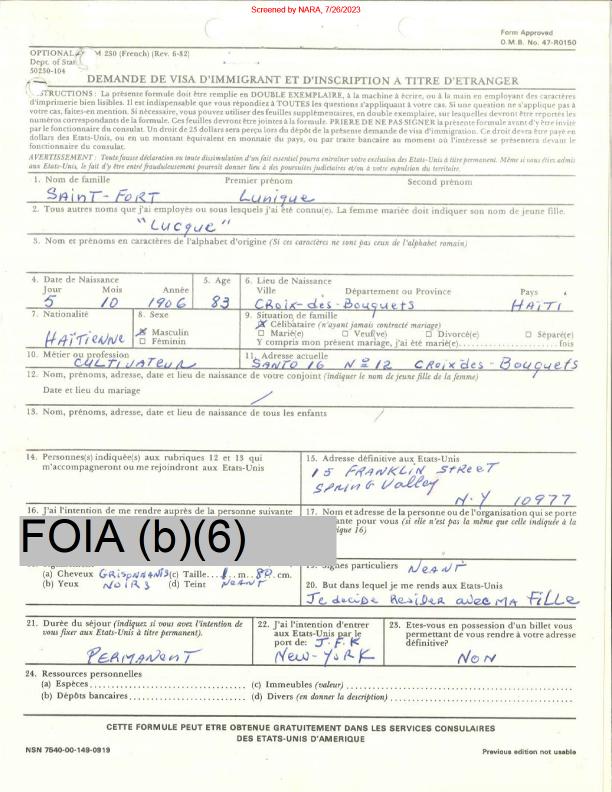 Screened by NARA, 7/26/2023
Form Approved
O.M.B. No. 47-R0150
OPTIONAL M 230 (French) (Rev. 6-82)
Dept. of Stat
50230-104
DEMANDE DE VISA D'IMMIGRANT ET D'INSCRIPTION A TITRE D'ETRANGER
STRUCTIONS: La présente formule doit être remplie en DOUBLE EXEMPLAIRE, à la machine à écrire, ou à la main en employant des caractères
d'imprimerie bien lisibles. Il est indispensable que vous répondiez à TOUTES les questions s'appliquant à votre cas. Si une question ne s'applique pas à
votre cas, faites-en mention. Si nécessaire, vous pouvez utiliser des feuilles supplémentaires, en double exemplaire, sur lesquelles devront être reportés les
numéros correspondants de la formule. Ces feuilles devront être jointes à la formule. PRIERE DE NE PAS SIGNER la présente formule avant d'y être invité
par le fonctionnaire du consulat. Un droit de 25 dollars sera perçu lors du dépôt de la présente demande de visa d'immigrant. Ce droit devra être payé en
dollars des Etats-Unis, ou en un montant équivalent en monnaie du pays, ou par traite bancaire au moment où l'intéressé se présentera devant le
fonctionnaire du consulat.
AVERTISSEMENT: Toute fausse déclaration ou toute dissimulation d'un fait essentiel pourra entraîner votre exclusion des Etats-Unis à titre permanent. Même si vous êtes admis
aux Etats-Unis, le fait d'y être entré frauduleusement pourrait donner lieu à des poursuites judiciaires et/ou à votre expulsion du territoire.
1. Nom de famille Premier prénom Second prénom
SAINT-FORT Lunique
2. Tous autres noms que j'ai employés ou sous lesquels j'ai été connu(e). La femme mariée doit indiquer son nom de jeune fille.
"Lucque"
3. Nom et prénoms en caractères de l'alphabet d'origine (Si ces caractères ne sont pas ceux de l'alphabet romain)
4. Date de Naissance 5. Age 6. Lieu de Naissance
Jour Mois Année Ville Département ou Province Pays
5 10 1906 83 CROIX-des-Bouquets HAÏTI
7. Nationalité 8. Sexe 9. Situation de famille
HAÏTIENNE
Célibataire (n'ayant jamais contracté mariage)
Masculin Marié(e) Veuf(ve) Divorcé(e) Séparé(e)
Féminin Y compris mon présent mariage, j'ai été marié(e) fois
10. Métier ou profession 11. Adresse actuelle
CULTIVATEUR SANTO 16 Nº 12 CROIX des-Bouquets
12. Nom, prénoms, adresse, date et lieu de naissance de votre conjoint (indiquer le nom de jeune fille de la femme)
Date et lieu du mariage
13. Nom, prénoms, adresse, date et lieu de naissance de tous les enfants
14. Personnes(s) indiquée(s) aux rubriques 12 et 13 qui
m'accompagneront ou me rejoindront aux Etats-Unis
15. Adresse définitive aux Etats-Unis
15 FRANKLIN STREET
SPRING Valley
N.Y 10977
16. J'ai l'intention de me rendre auprès de la personne suivante
FOIA (b)(6)
17. Nom et adresse de la personne ou de l'organisation qui se porte
ante pour vous (si elle n'est pas la même que celle indiquée à la
que 16)
(a) Cheveux GRISONNANTS (c) Taille 1 m 80 cm.
(b) Yeux NOIRS (d) Teint NEANT
Signes particuliers NEANT
20. But dans lequel je me rends aux Etats-Unis
Je decide Resider avec MA Fille
21. Durée du séjour (indiquez si vous avez l'intention de
vous fixer aux Etats-Unis à titre permanent).
PERMANENT
22. J'ai l'intention d'entrer
aux Etats-Unis par le
port de: J.F.K
New-YORK
23. Etes-vous en possession d'un billet vous
permettant de vous rendre à votre adresse
définitive?
NON
24. Ressources personnelles
(a) Espèces (c) Immeubles (valeur)
(b) Dépôts bancaires (d) Divers (en donner la description)
CETTE FORMULE PEUT ETRE OBTENUE GRATUITEMENT DANS LES SERVICES CONSULAIRES
DES ETATS-UNIS D'AMERIQUE
NSN 7540-00-149-0919 Previous edition not usable